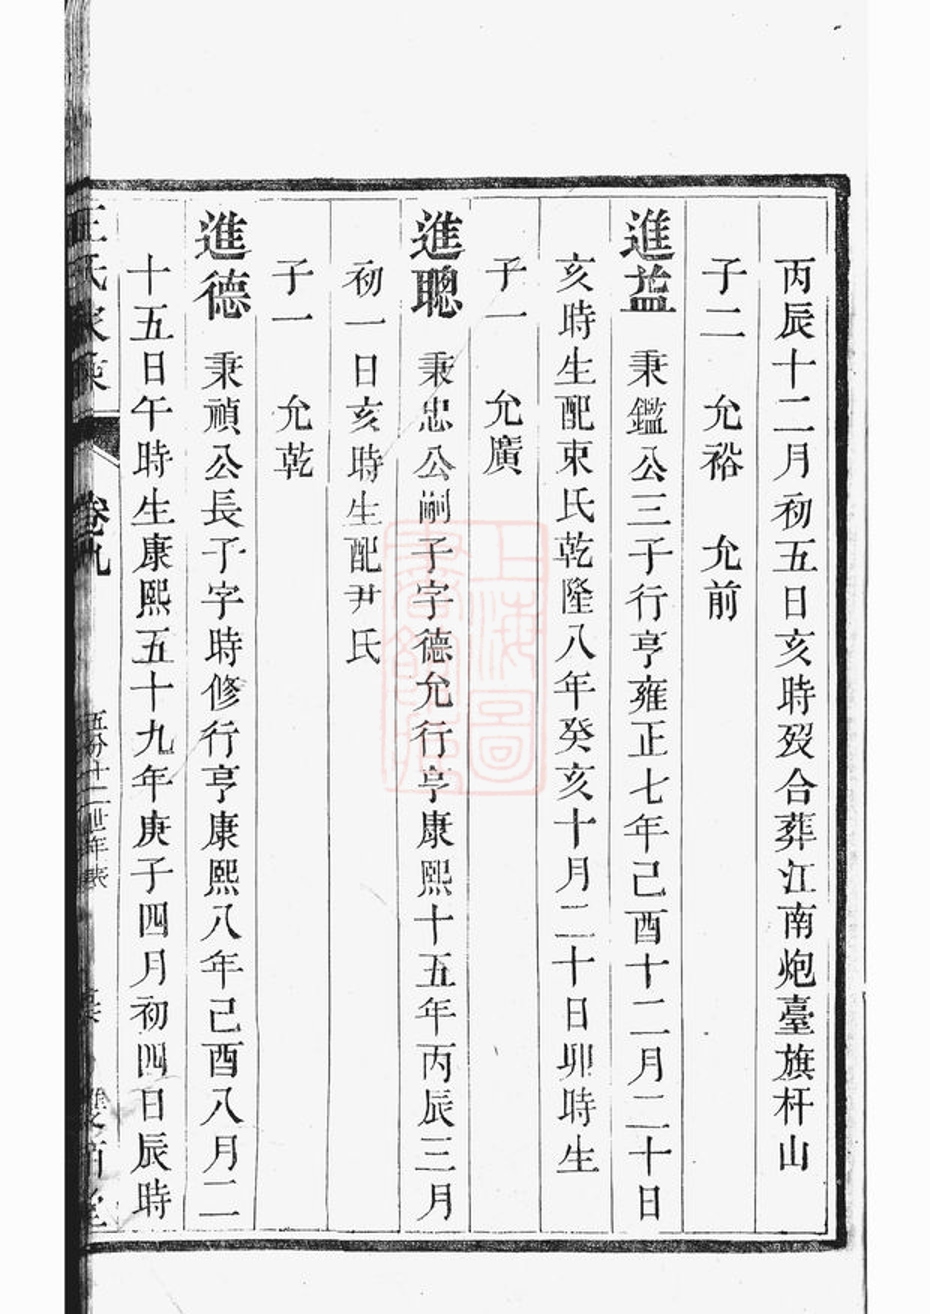 丙辰十二月初五日亥時歿合葬江南炮臺旗杆山
子二 允裕 允前
進益 秉鑑公三子行亨雍正七年己酉十二月二十日
亥時生配束氏乾隆八年癸亥十月二十日卯時生
子一 允廣
進聰 秉忠公嗣子字德允行亨康熙十五年丙辰三月
初一日亥時生配尹氏
子一 允乾
進德 秉禎公長子字時修行亨康熙八年己酉八月二
十五日午時生康熙五十九年庚子四月初四日辰時
王氏家乘 卷九 五分十二世年表
上海圖書館藏